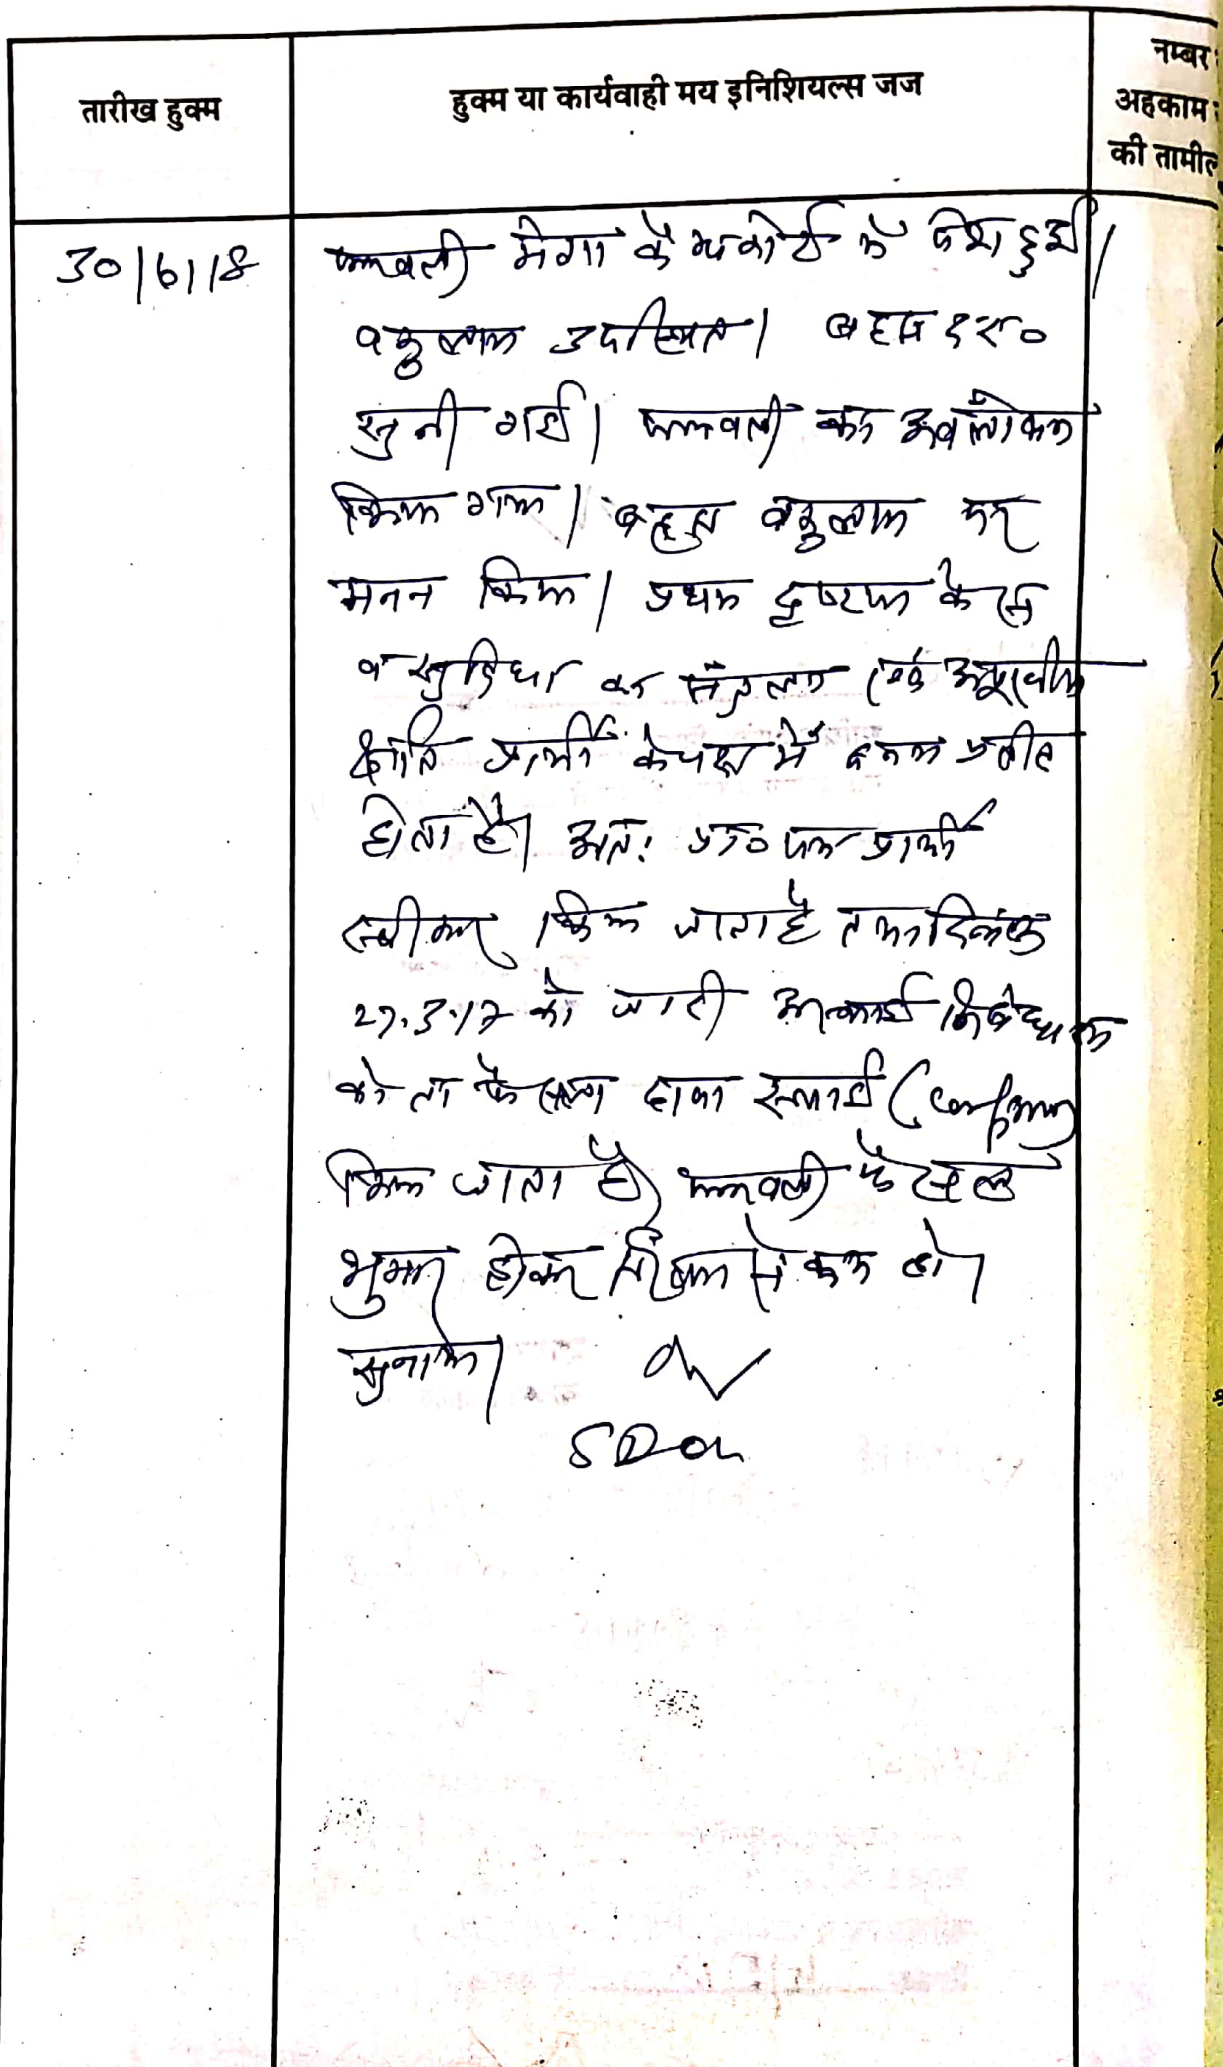 तारीख हुक्म
हुक्म या कार्यवाही मय इनिशियल्स जज
नम्बर
अहकाम
की तामील
30/6/18
पत्रावली मेगा कैम्प कोर्ट में पेश हुई।
वकुलाय उपस्थित। बहस
सुनी गई। पत्रावली का अवलोकन
किया गया। बहस वकुलाय पर
मनन किया। प्रथम दृष्टया केस
व सुविधा का संतुलन एवं अपूरणीय
क्षति प्रार्थी के पक्ष में बनना प्रतीत
होता है। अतः प्रा० पत्र प्रार्थी
स्वीकार किया जाता है तथा दिनांक
27.3.17 को जारी अस्थाई निषेधाज्ञा
को ता फैसला दावा स्थाई (Confirm)
किया जाता है। पत्रावली फैसल
शुमार होकर नम्बर से कम हो।
सुनाया।
SDO